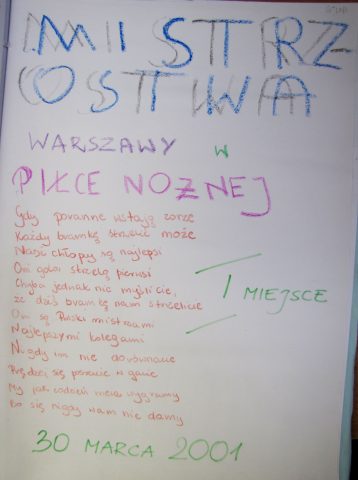 MISTRZ
OSTWA
WARSZAWY W
PIŁCE NOŻNEJ
Gdy poranne wstają zorze
Każdy bramkę strzelić może
Nasi chłopcy są najlepsi
Oni gola strzelą pierwsi
Chyba jednak nie myślicie,
że dziś bramkę nam strzelicie
Oni są Polski mistrzami
Najlepszymi kolegami
Nigdy im nie dorównacie
Prędzej się w
My jak codzień mecz wygramy
Bo się nigdy wam nie damy
I MIEJSCE
30 MARCA 2001